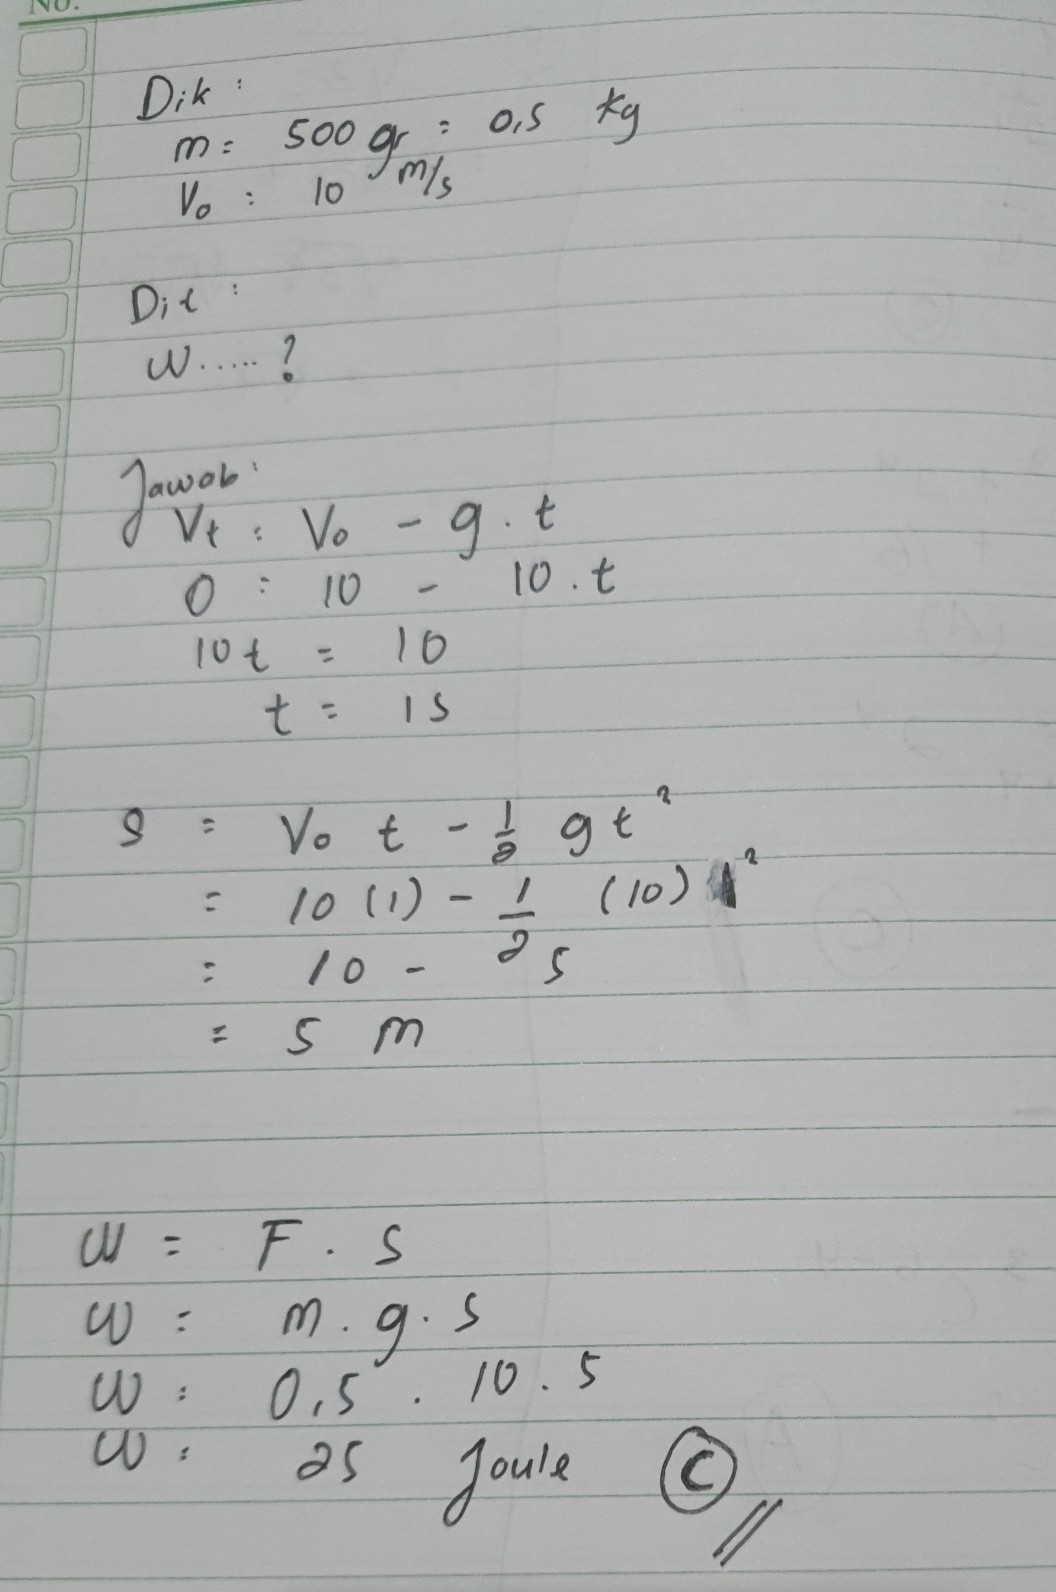 No.
Dik :
m = 500 gr = 0,5 kg
Vo = 10 m/s
Dit :
W.....?
Jawab :
Vt = Vo - g . t
0 = 10 - 10 . t
10t = 10
t = 1s
S = Vo t - 1/2 gt²
= 10 (1) - 1/2 (10) 1²
= 10 - 5
= 5 m
W = F . s
W = m . g . s
W = 0,5 . 10 . 5
W = 25 Joule C